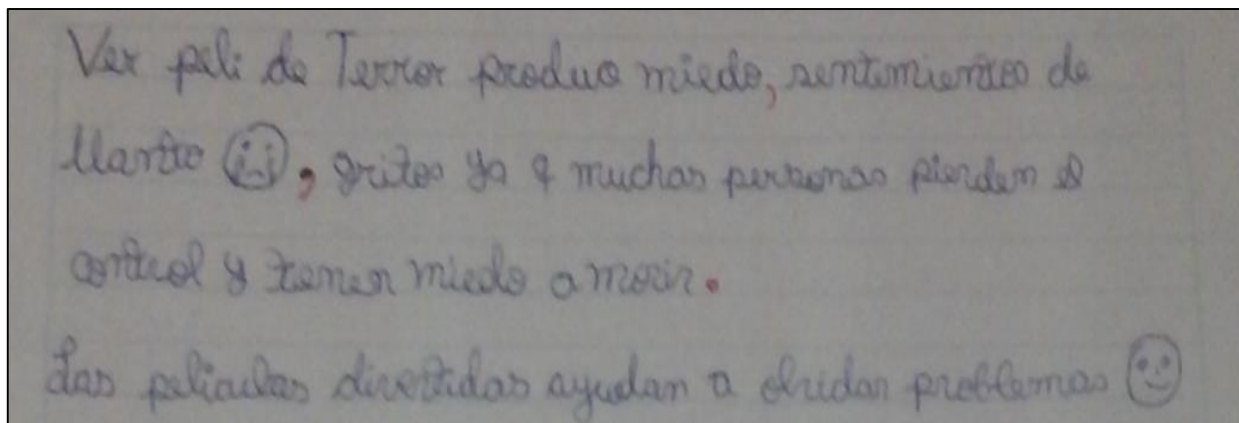 Ver peli de Terror produce miedo, sentimientos de
llanto ☹, gritos ya q muchas personas pierden el
control y tienen miedo a morir.
Las peliculas divertidas ayudan a olvidar problemas ☺